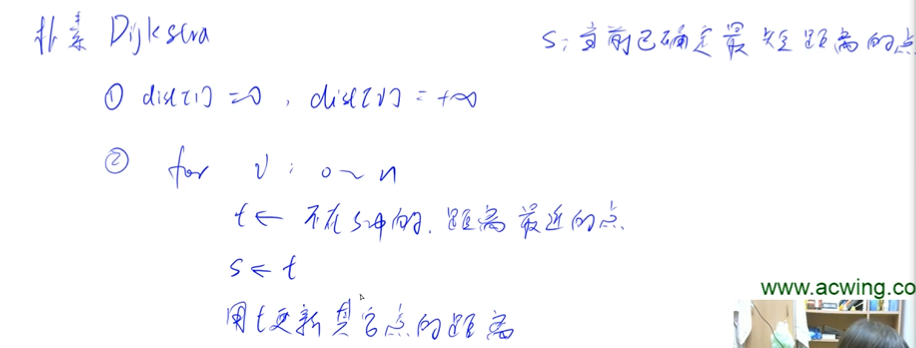 朴素 Dijkstra
s: 当前已确定最短距离的点
① dist[1]=0, dist[v]=+∞
② for v: 0~n
t← 不在s中的, 距离最近的点
s←t
用t更新其它点的距离
www.acwing.co